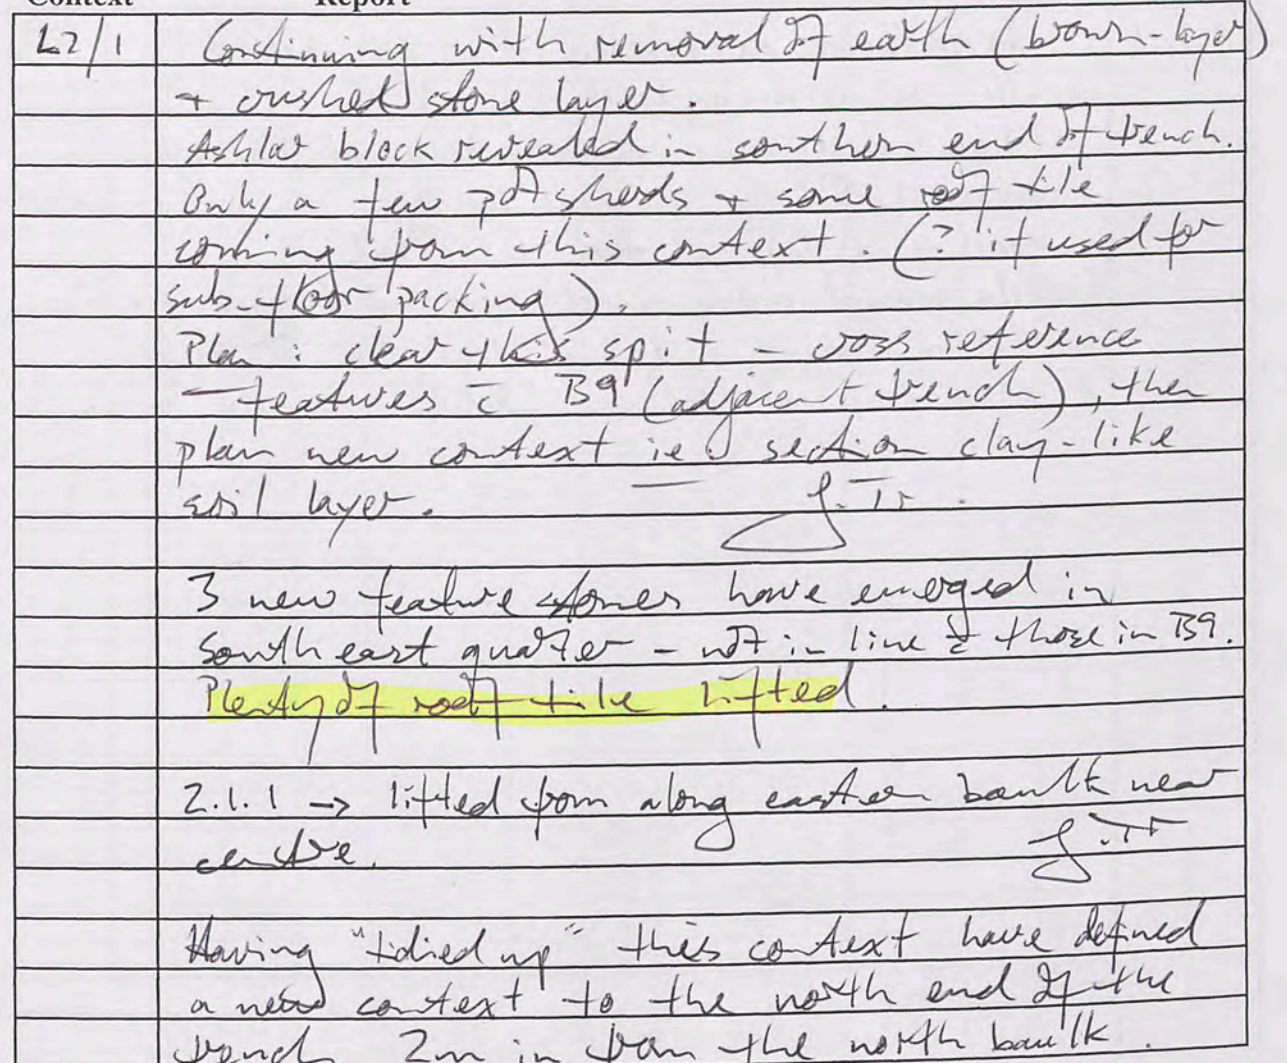 Context Report
L2/1 Continuing with removal of earth (brown-layer)
+ crushed stone layer.
Ashlar block revealed in southern end of trench.
Only a few pot sherds + some roof tile
coming from this context. (? if used for
sub-floor packing).
Plan : clear this spit - cross reference
features c̄ B9 (adjacent trench), then
plan new context ie. section clay-like
soil layer. J.Tr.
3 new feature stones have emerged in
South east quarter - not in line c̄ those in B9.
Plenty of roof tile lifted.
2.1.1 → lifted from along eastern baulk near
centre. J.Tr
Having "tidied up" this context have defined
a new context to the north end of the
trench 2m in from the north baulk.